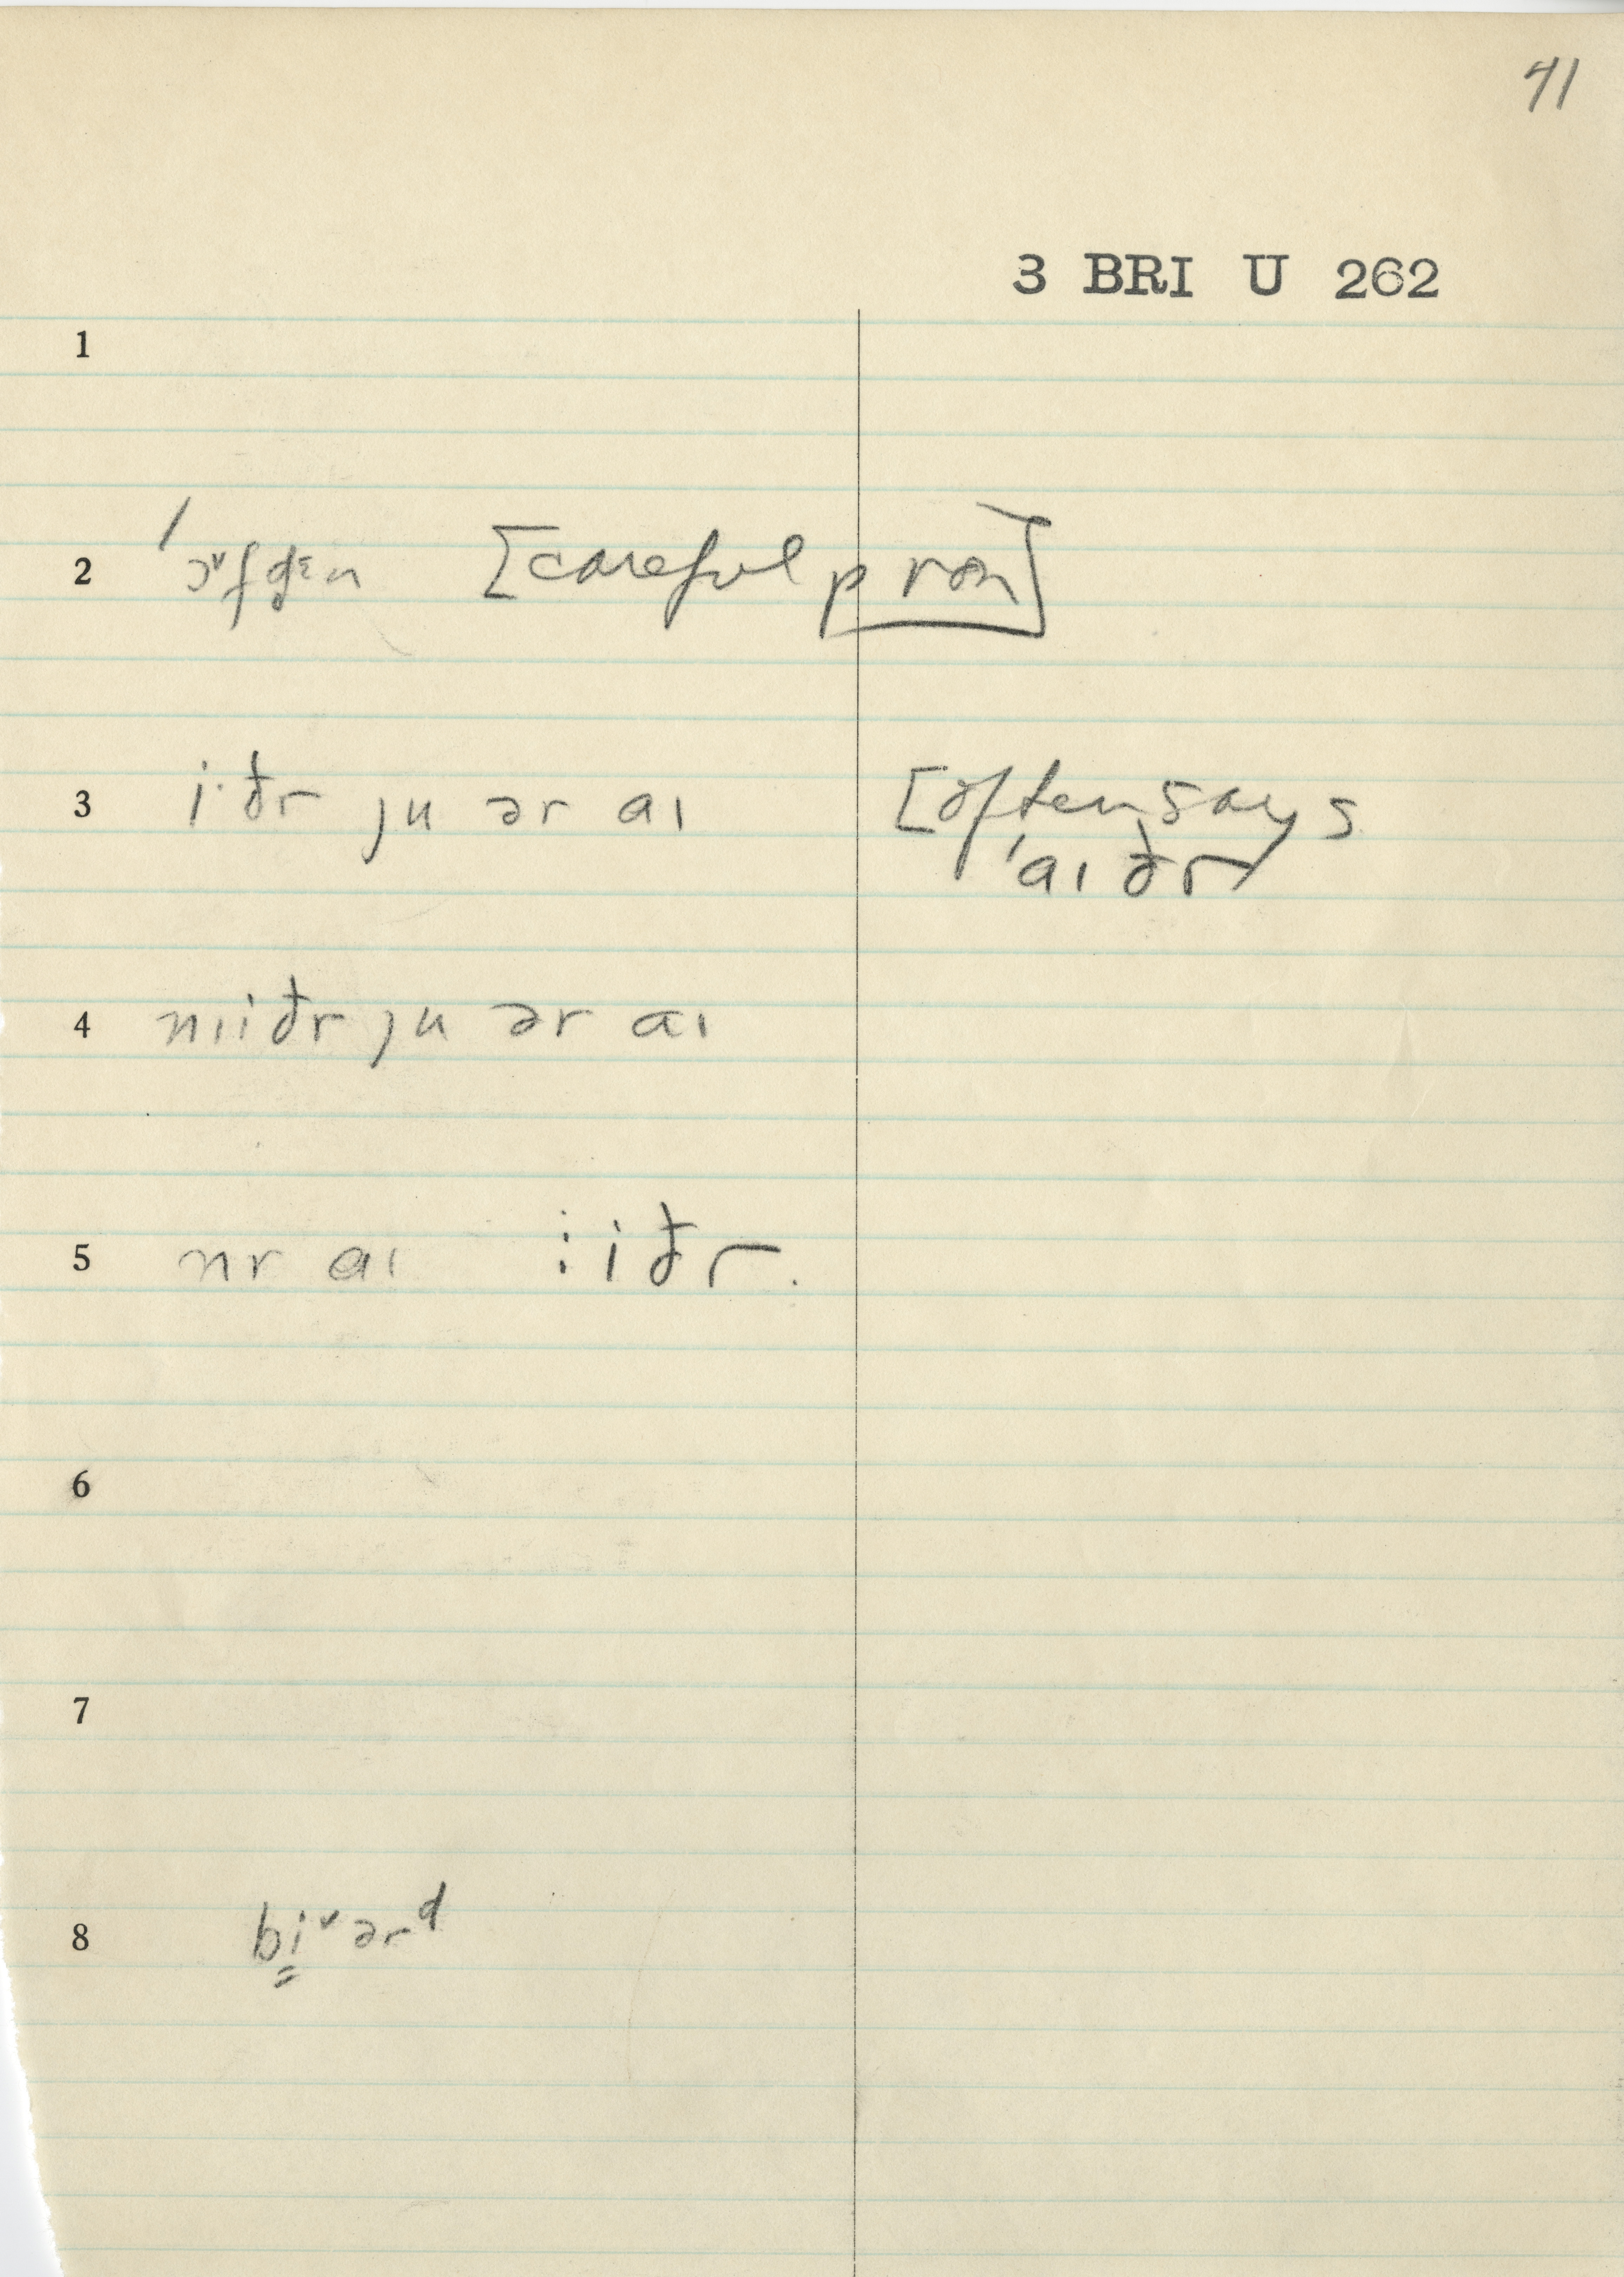 41
3 BRI U 262
1
2 [careful pron]
3 i·ðr ȷu ər aɪ [often says
ˈaɪ ðr
4 niiðr ȷu ər aɪ
5 nr aɪ : iðr.
6
7
8 bi̳ˇərᵈ